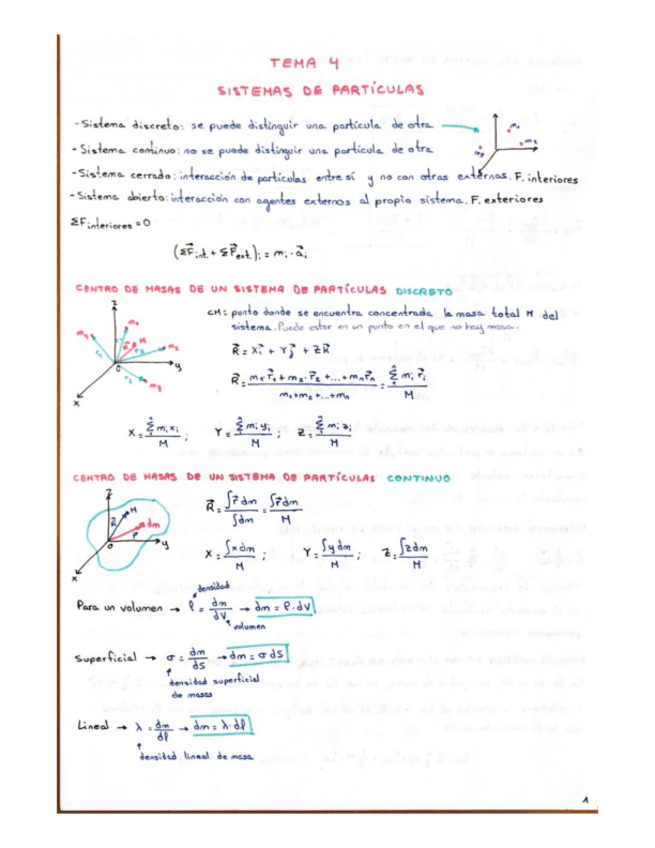 TEMA 4
SISTEMAS DE PARTÍCULAS
- Sistema discreto: se puede distinguir una partícula de otra
- Sistema continuo: no se puede distinguir una partícula de otra
- Sistema cerrado: interacción de partículas entre sí y no con otras externas. F. interiores
- Sistema abierto: interacción con agentes externos al propio sistema. F. exteriores
ΣF interiores = 0
(ΣF⃗int. + ΣF⃗ext.)i = mi · a⃗i
CENTRO DE MASAS DE UN SISTEMA DE PARTÍCULAS DISCRETO
CM: punto donde se encuentra concentrada la masa total M del
sistema. Puede estar en un punto en el que no hay masa.
R⃗ = Xi⃗ + Yj⃗ + ZK⃗
R⃗ = m₁·r⃗₁ + m₂·r⃗₂ + ... + mₙr⃗ₙ / m₁+m₂+...+mₙ = Σ mi r⃗i / M
X = Σ mi xi / M ; Y = Σ mi yi / M ; Z = Σ mi zi / M
CENTRO DE MASAS DE UN SISTEMA DE PARTÍCULAS CONTINUO
R⃗ = ∫r⃗ dm / ∫dm = ∫r⃗ dm / M
X = ∫x dm / M ; Y = ∫y dm / M ; Z = ∫z dm / M
densidad
Para un volumen → ρ = dm / dV → dm = ρ · dV
volumen
Superficial → σ = dm / dS → dm = σ dS
densidad superficial
de masas
Lineal → λ = dm / dℓ → dm = λ · dℓ
densidad lineal de masa
1